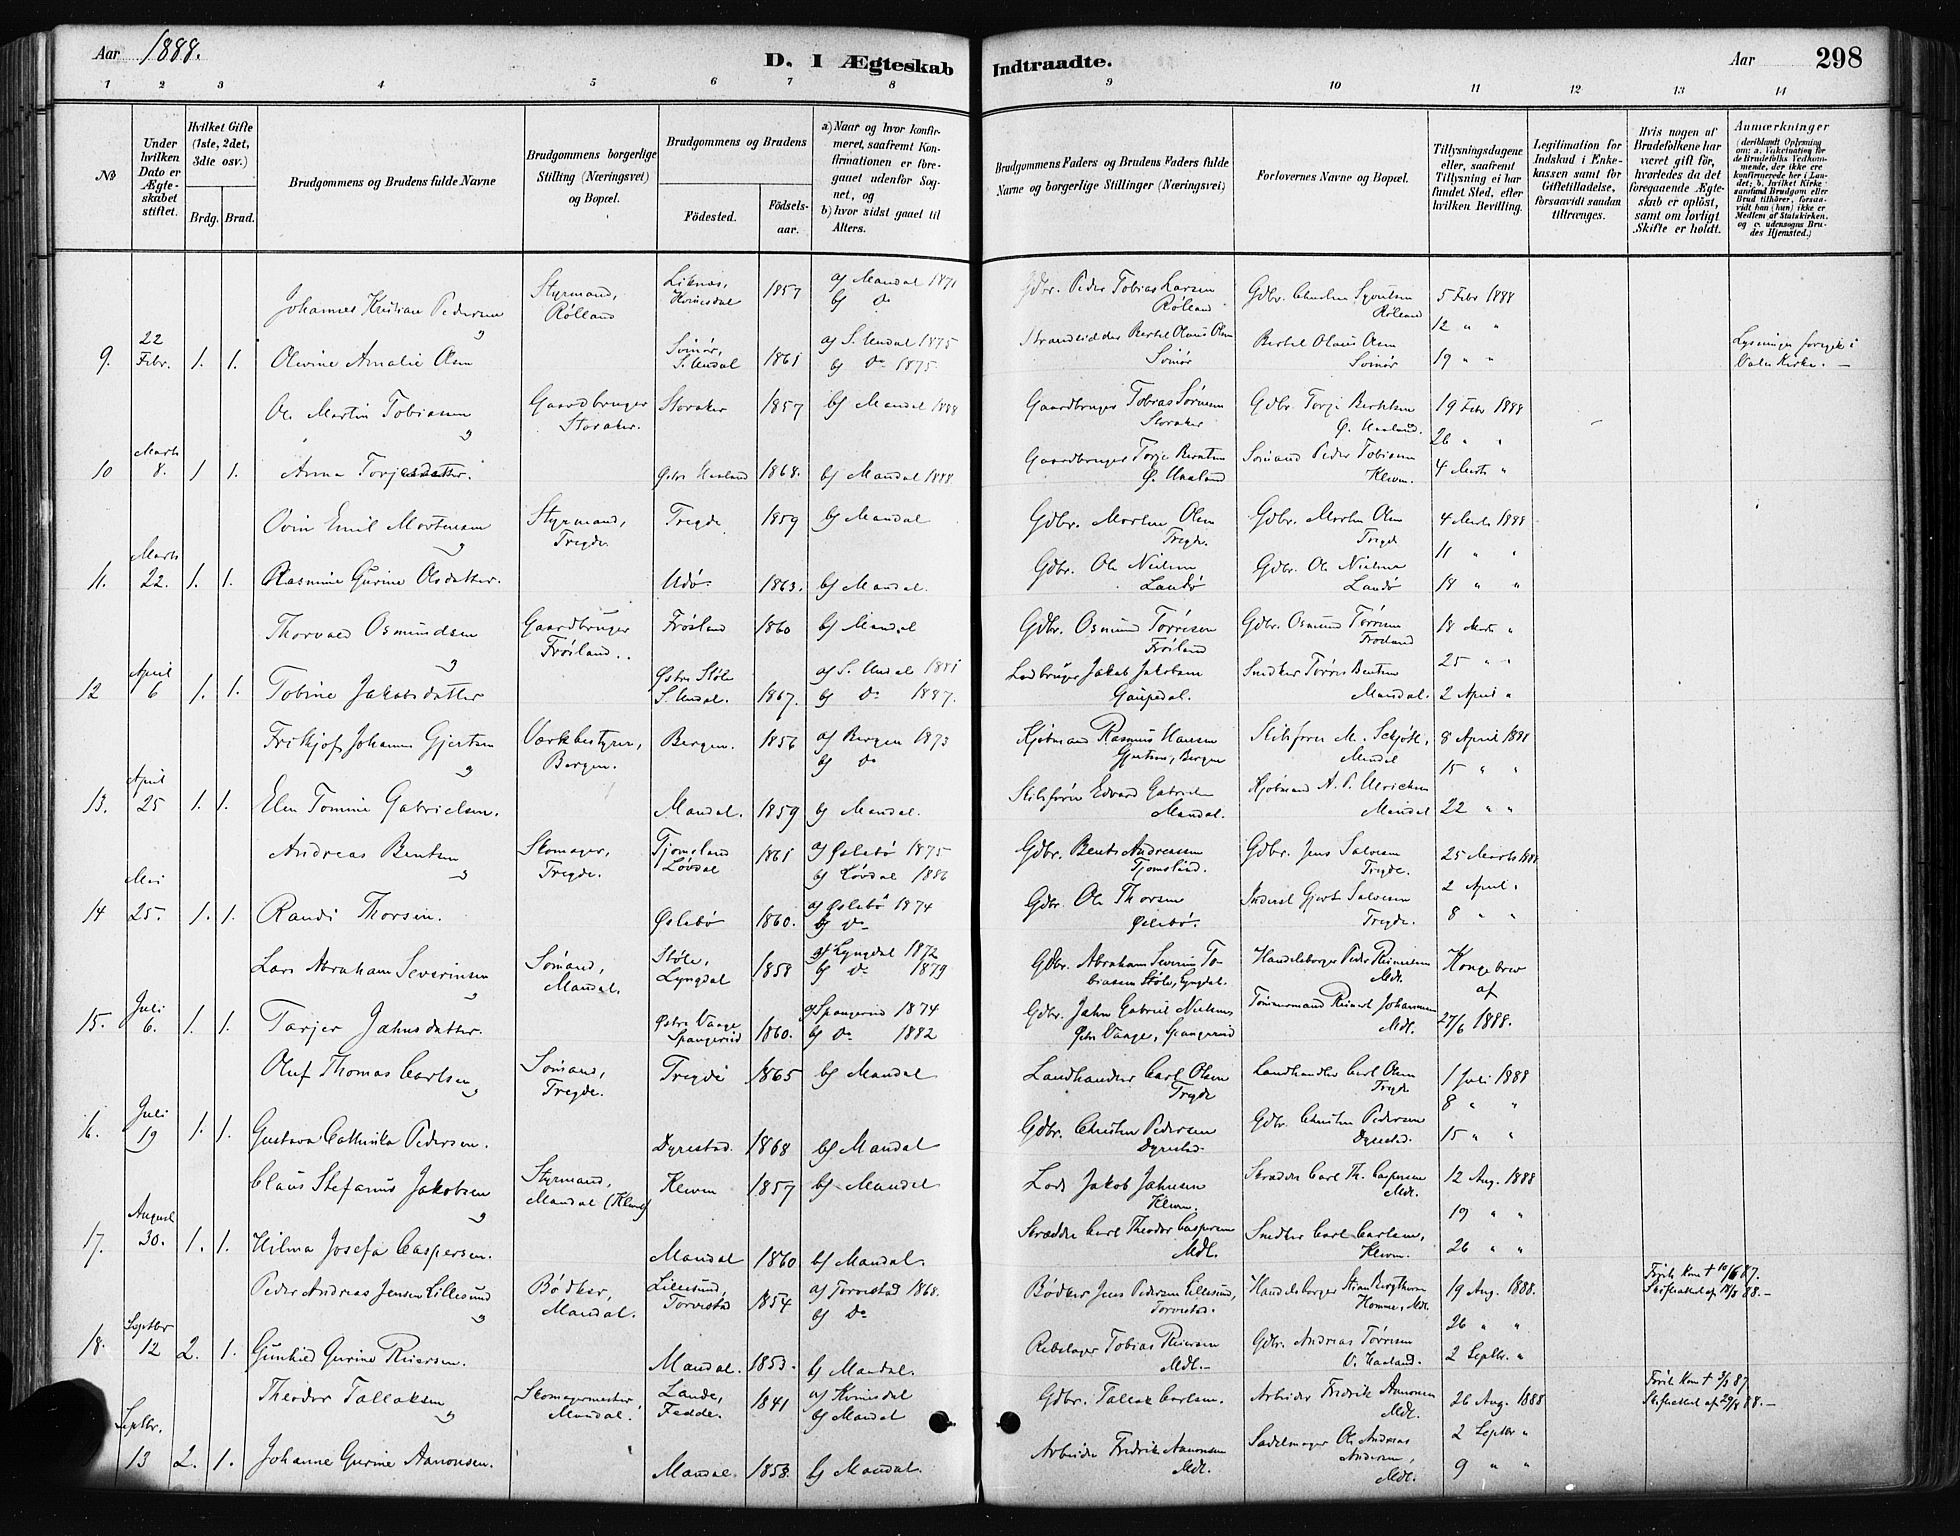 Aar 1888.
D. I Ægteskab Indtraadte.
Aar
298
1 2 3 4 5 6 7 8 9 10 11 12 13 14
No
Under hvilken Dato er Ægteskabet stiftet.
Hvilket Gifte (1ste, 2det, 3die osv.)
Brdg. Brud.
Brudgommens og Brudens fulde Navne
Brudgommens borgerlige Stilling (Næringsvei) og Bopæl.
Brudgommens og Brudens
Fødested.
Fødselsaar.
a) Naar og hvor konfirmeret, saafremt Konfirmationen er foregaaet udenfor Sognet, og
b) hvor sidst gaaet til Alters.
Brudgommens Faders og Brudens Faders fulde Navne og borgerlige Stillinger (Næringsvei)
Forlovernes Navne og Bopæl.
Tillysningsdagene eller, saafremt Tillysning ei har fundet Sted, efter hvilken Bevilling.
Legitimation for Indskud i Enkekassen samt for Giftetilladelse, forsaavidt saadan tiltrænges.
Hvis nogen af Brudefolkene har været gift før, hvorledes da det foregaaende Ægteskab er opløst, samt om lovligt Skifte er holdt.
Anmærkninger
(deriblandt Oplysning om: a. Vakcination for de Brudefolks Vedkommende, der ikke ere konfirmerede her i Landet; b. hvilket Kirkesamfund Brudgom eller Brud tilhører, forsaavidt han (hun) ikke er Medlem af Statskirken, og c. udensogns Brudes Hjemsted.)
Johannes Kristian Pedersen Styrmand, Rølland Liknæs, Kvinesdal 1857 a) Mandal 1871 b) Do Gdbr. Peder Tobias Larsen Røland Gdbr. Røland 5 Febr 1888
12 " "
9. 22 Febr. 1. 1. Olevine Amalie Olsen Svinør, S. Undal 1861 a) S. Undal 1875 b) Do 1875. Strandsidder Bertel Olaus Olsen Svinør Bertel Olaus Olsen Svinør 19 " " Lysninger foregik i Valle Kirke. —
Ole Martin Tobiassen Gaardbruger Storaker. Storaker 1857 b) Mandal 1888 Gaardbruger Tobias Sørensen Storaker Gdbr. Torje Ø. Haaland. 19 Febr 1888
26 " "
10 Marts 8. 1 1. Anna Torjesdatter. Østre Haaland 1868. b) Mandal 1888 Gaardbruger Torje Ø. Haaland Sømand Peder Tobiasen Kleven. 4 Marts "
Emil Mortensen Styrmand, Tregde. Tregde 1859 b) Mandal Gdbr. Morten Olsen Tregde. Gdbr. Morten Olsen Tregde 4 Marts 1888
11 " "
11. Marts 22. 1. 1. Rasmine Gurine Olsdatter. Udø. 1863. b) Mandal. Gdbr. Ole Nielsen Landø Gdbr. Ole Nielsen Landø 18 " "
Thorvald Osmundsen Gaardbruger Frøiland.. Frøsland 1860 b) Mandal Gdbr. Osmund Tørresen Frøiland Gdbr. Osmund Tørresen Frøiland 18 Marts "
25 " "
12 April 6 1. 1. Tobine Jakobsdatter Østre Støle S. Undal. 1867. a) S. Undal 1881 b) Do 1887. Jakob Jakobsen Gaupedal. Snedker Tørres Bentsen Mandal. 2 April "
Frithjof Johannes Gjertsen Værkbestyrer, Bergen. Bergen. 1856 a) Bergen 1873 b) Do Kjøbmand Rasmus Hansen Gjertsen, Bergen Skibsfører M. Schjøtt, Mandal 8 April 1888
15 " "
13. April 25 1. 1. Elen Tomine Gabrielsen. Mandal. 1859 b) Mandal. Skibsfører Edvard Gabrielsen Mandal. Kjøbmand A. P. Ulrichsen Mandal 22 " "
Andreas Bentsen Skomager, Tregde. Tjomsland Løvdal 1861 a) Øslebø 1875 b) Løvdal 1886 Gdbr. Bent Andreassen Tjomsland. Gdbr. Jens Salvesen Tregde. 25 Marts 1888
2 April "
14 Mai 25. 1. 1. Randi Thorsen. Øslebø 1860. a) Øslebø 1874 b) Do Gdbr. Ole Thorsen Øslebø. Inderst Gjert Salvesen Tregde. 8 " "
Lars Abraham Severinsen Sømand, Mandal. Støle, Lyngdal 1858 a) Lyngdal 1872 b) Do 1879 Gdbr. Abraham Severin Tobiassen Støle, Lyngdal. Handelsborger Peder Reiersen Mdl. Kongebrev af 27/6 1888.
15. Juli 6. 1. 1. Tarjer Jahnsdatter. Østre Vaage Spangereid 1860. a) Spangereid 1874 b) Do 1882 Gdbr. Jahn Gabriel Nielsen Østre Vaage, Spangereid Tømmermand Reinert Johannesen Mdl.
Oluf Thomas Carlsen Sømand, Tregde. Tregde 1865 b) Mandal Landhandler Carl Olsen Tregde Landhandler Carl Olsen Tregde 1 Juli 1888
8 " "
16. Juli 19 1. 1. Gustava Cathinka Pedersen. Dyrestad. 1868 b) Mandal Gdbr. Christen Pedersen Dyrestad. Gdbr. Christen Pedersen Dyrestad. 15 " "
Claus Stefanus Jakobsen Styrmand, Mandal (Kleven) Kleven 1857 b) Mandal Lods Jakob Jahnsen Kleven. Skrædder Carl Th. Caspersen Mdl. 12 Aug. 1888
19 " "
17. August 30. 1. 1. Hilma Josefa Caspersen. Mandal 1860 b) Mandal. Skrædder Carl Theodor Caspersen Mdl. Snedker Carl Carlsen, Kleven. 26 " "
Peder Andreas Jensen Lillesund Bødker, Mandal. Lillesund, Torvestad 1854 a) Torvestad 1868. b) Do Bødker Jens Pedersen Lillesund, Torvestad. Handelsborger Stian Bergthorsen Homme, Mdl. 19 Aug. 1888. Forrige Kone † 10/6 87. Skifteattest af 14/8 88.—
26 " "
18. Septbr 12 2. 1. Gunhild Gurine Reiersen. Mandal. 1853. b) Mandal. Rebslager Tobias Reiersen Mdl.— Gdbr. Andreas Tørresen V. Haaland. 2 Septbr. "
Theodor Tallaksen Skomagermester, Mandal. Lande, Fedde. 1841 a) Kvinesdal b) Mandal Gdbr. Tallak Carlsen. Arbeider Fredrik Aanonsen Mdl. 26 Aug. 1888 Forrige Kone † 3/5 87 Skifteattest af 29/8 88.—
2 Septbr "
Septbr. 13 2. 1. Johanne Gurine Aanonsen. Mandal. 1858. b) Mandal. Arbeider Fredrik Aanonsen Mdl. Sadelmager Ole Andreas Andersen, Mdl. 9 " "